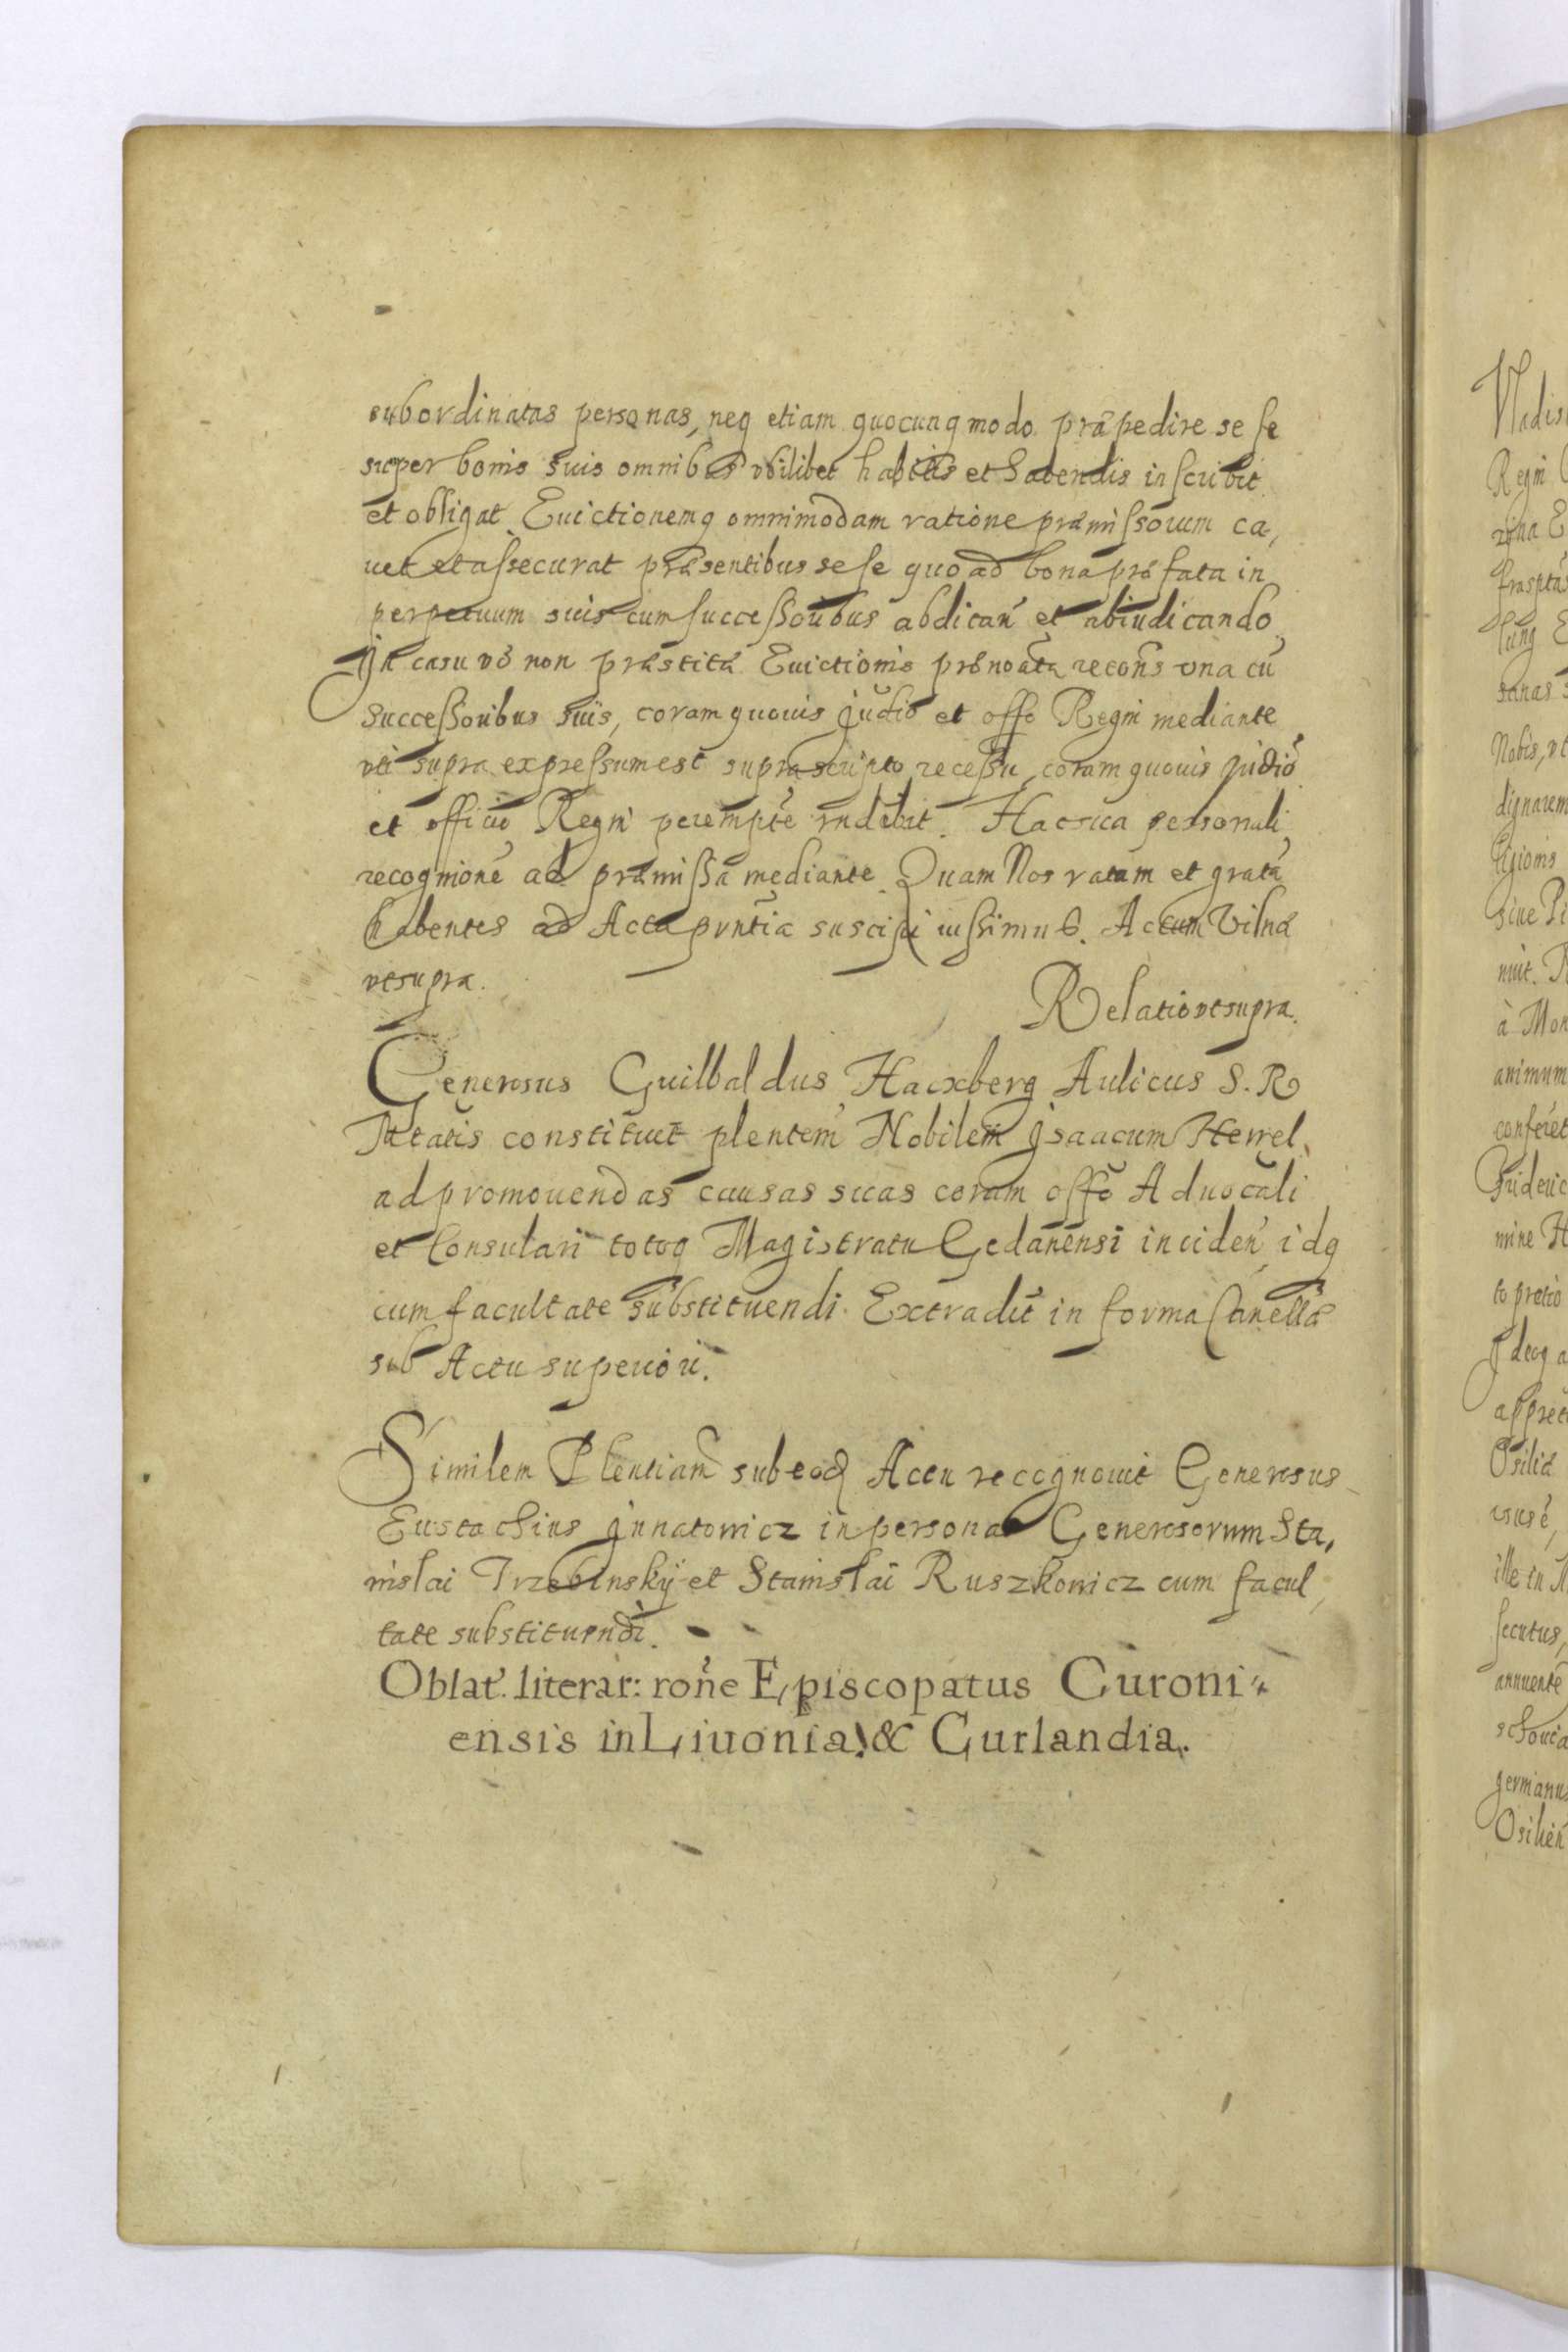 subordinatas personas, neq etiam quocunq modo præpedire se se
super bonis suis omnibus vbilibet habitis et habendis inscribit
et obligat Euictionemq omnimodam ratione præmissorum ca,
uet et assecurat præsentibus sese quo ad bona præfata in
perpetuum suis cum successoribus abdican̄ et abiudicando
Jn casu vō non præstitæ Euictionis prænoāta recōns vna cū
Successoribus suis, coram quouis judīo et offo Regni mediante
vti supra expressum est suprascripto recessu coram quouis judiō
et officio Regni perempte rndēbit. Hac sua personali
recognione ad præmissa mediante Quam Nos ratam et gratā
habentes ad Acta pρntia suscipi iussimus. Actum Vilnæ
vt supra.
Relatio vt supra.
Generosus Guilbaldus Hacxberg Aulicus S. R
Mtatis constituit plentem Nobilem Jsaacum Herrel
ad promouendas causas suas coram offo Aduocāli
et Consulari totoq Magistratu Gedanensi inciden̄ idq
cum facultate substituendi. Extradit̄ in forma Canellæ
sub Actu superiori.
Similem Plentiam sub eod Actu recognouit Generosus
Eustachius Jnnatowicz in persona Generosorum Sta,
nislai Trzebinskij et Stanislai Ruszkowicz cum facul
tate substituendi.
Oblat. literar: rōne Episcopatus Curoni-
ensis in Liuonia, & Curlandia.
Vladis
Regni
rina E
sanas
Nobis, vt
dignarem
ligionis
siue Pi
nuit.
à Mon
animum
conferēt
Frideric
mine H
to pretio
Jdeoq a
Osiliæ
ille in
secutus,
annuente
germanus
Osilien̄